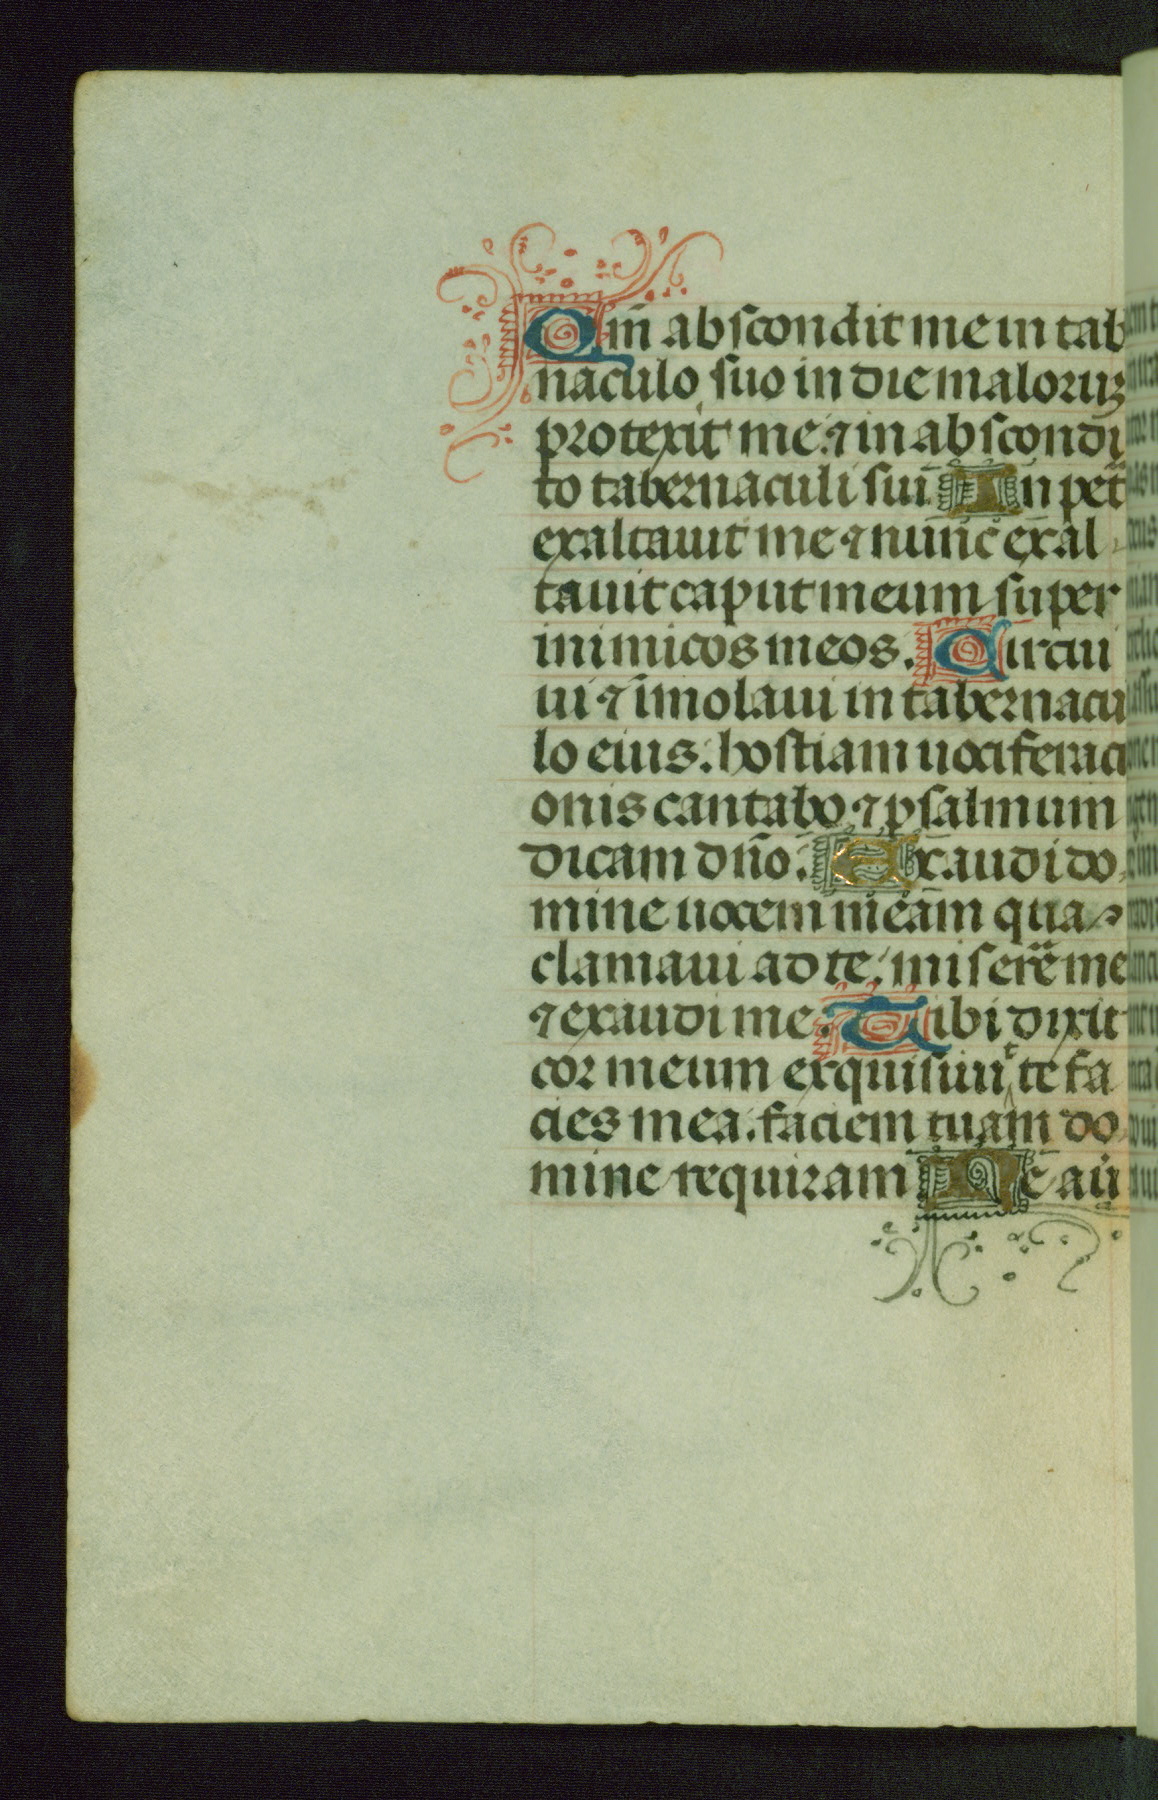 Qm̄ abscondit me in tab
naculo suo in die maloruꝫ
protexit me. ⁊ in abscondi
to tabernaculi sui In pet̃
exaltauit me ⁊ nunc exal
tauit caput meum super
inimicos meos. Circui
ui ⁊ ī̄molaui in tabernacu
lo eius. hostiam uociferaci
onis cantabo ⁊ psalmum
dicam dn̄o. Exaudi do
mine uocem meam qua
clamaui ad te. miserẽ me
⁊ exaudi me. Tibi dixit
cor meum exquisiuit te fa
cies mea. faciem tuam do
mine requiram Ne au